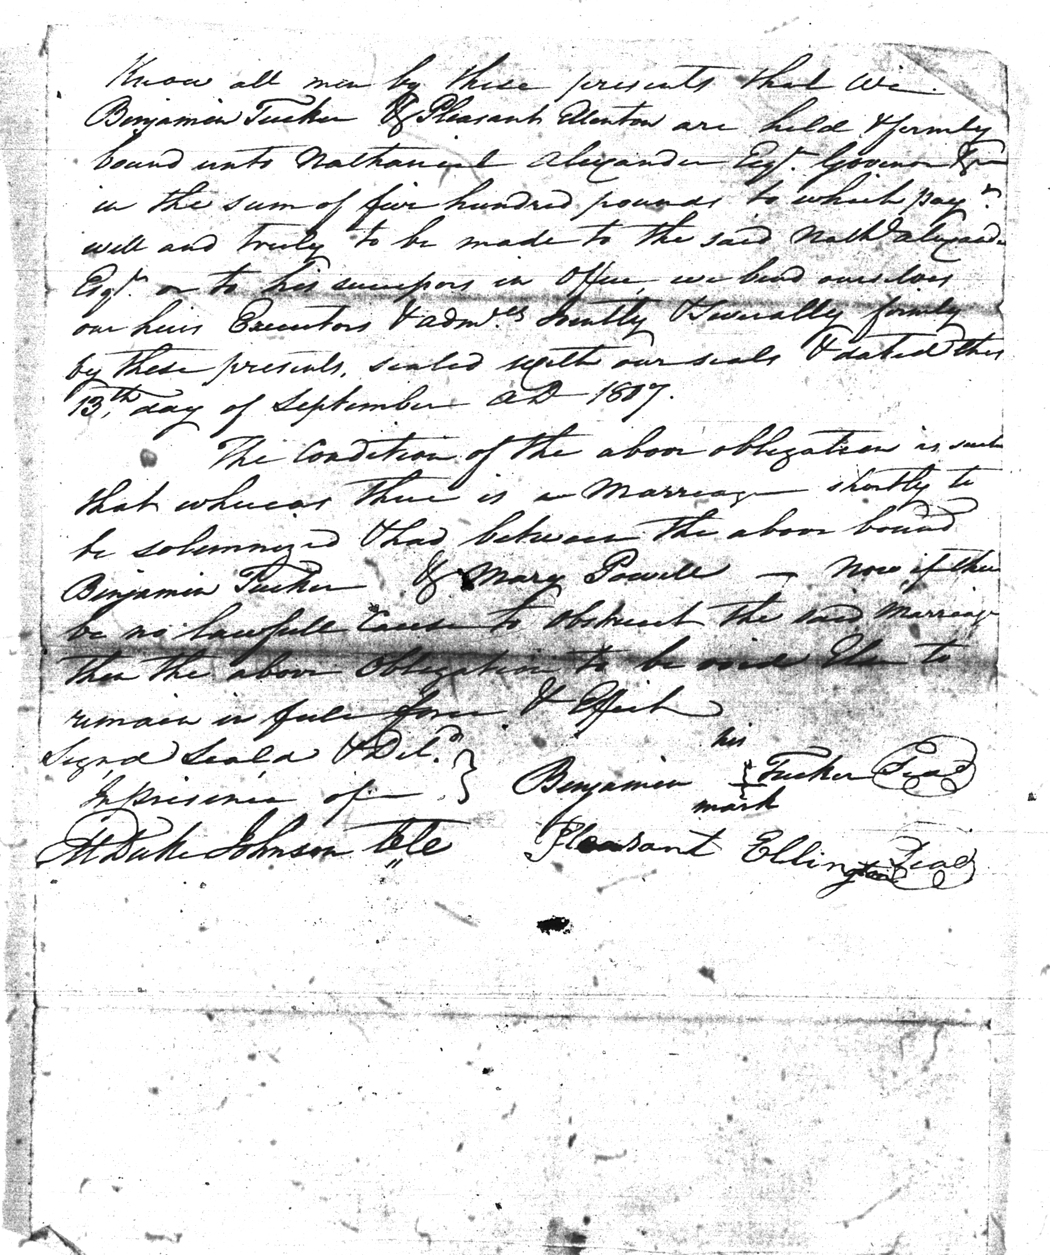 Know all men by these presents that We
Benjamin Tucker & Pleasant are held & firmly
bound unto Nathaniel Alexander Esqr. Govenor &c
in the sum of five hundred pounds to which paymt.
well and truly to be made to the said Nathl Alexander
Esqr. or to his sucessors in Office, we bind ourselves
our heirs Executors & admr.es Jointly & Severally firmly
by these presents, sealed with our seals & dated this
13th. day of September AD 1807.
The Condition of the above obligation is such
that whereas there is a Marriage shortly to
be solemnized & had between the above bound
Benjamin Tucker & Mary Powell — Now if there
be no lawfull Cause to obstruct the said Marriage
then the above Obligation to be void Else to
remain in full force & Effect
Signd Seald & Deld.
In presence of
his
Benjamin + Tucker Seal
mark
M Duke Johnson CC
Pleasant Ellington Seal